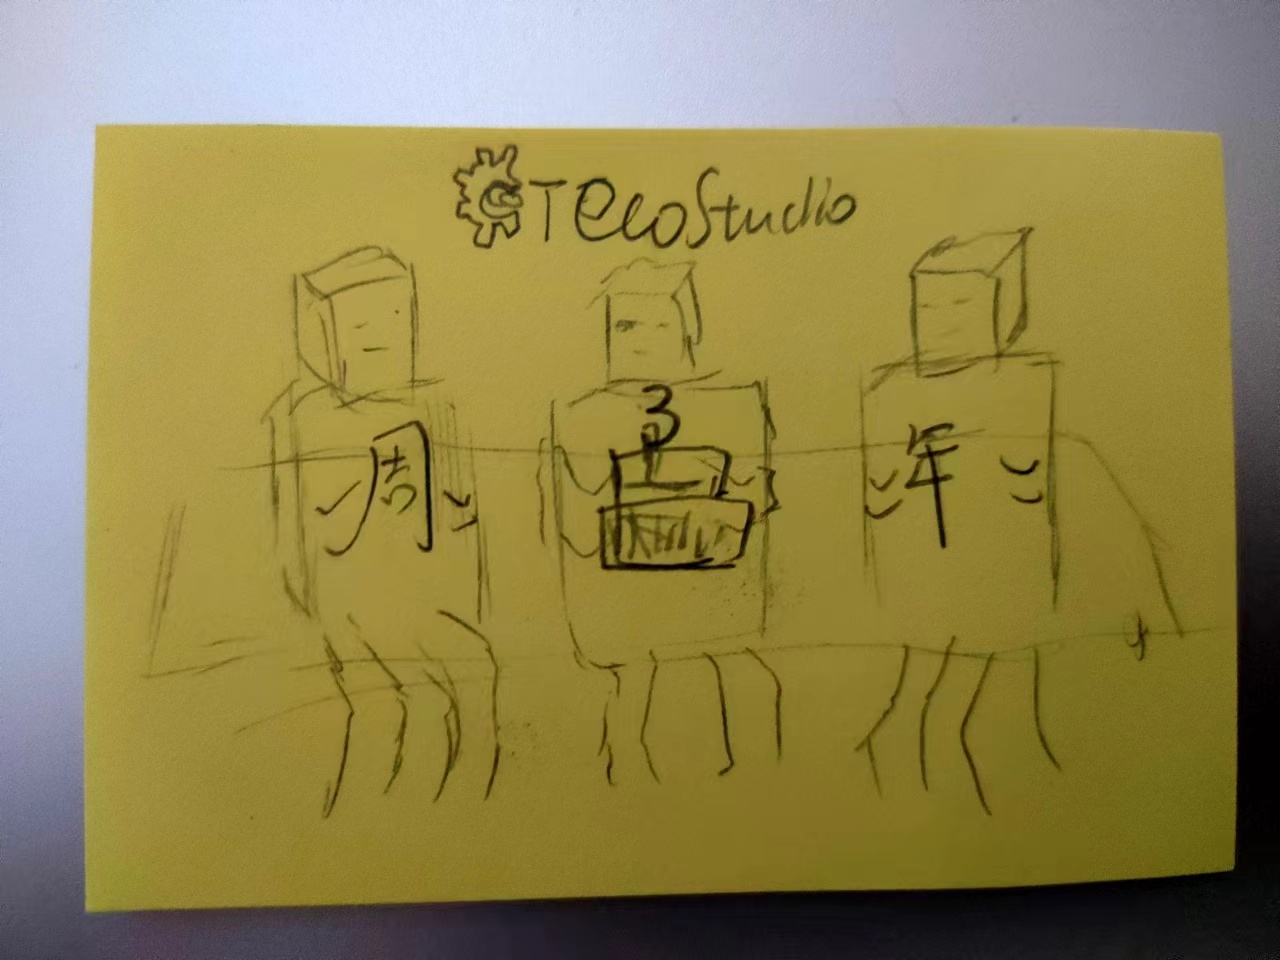 TecoStudio
周 3 年